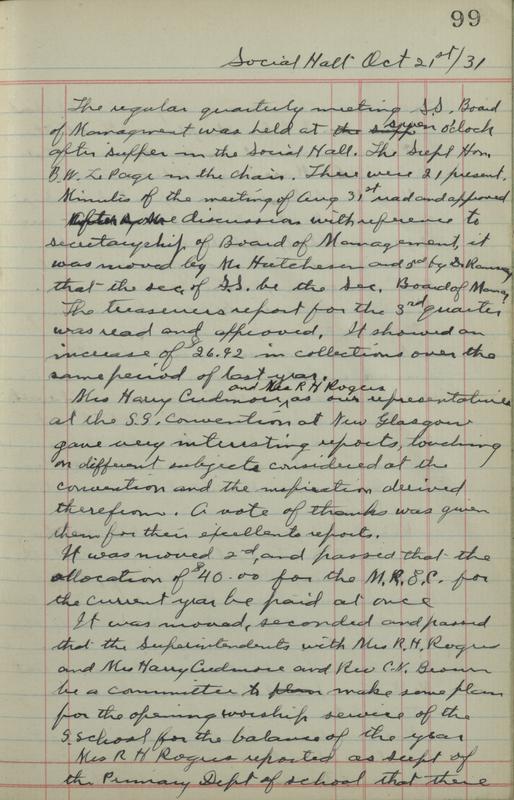 99
Social Hall Oct 21st/31
The regular quarterly meeting S.S. Board
of Managment was held at the supp seven o'clock
after supper in the Social Hall. The Supt Hon.
B.W. LePage in the chair. There were 21 present.
Minutes of the meeting of Aug 31st read and approved
After some discussion with reference to
secretaryship of Board of Management, it
was moved by Mr Hutcheson and 2nd by Dr Ramsay
that the sec, of S.S. be the Sec. Board of Mang?
The treasurers report for the 3rd quarter
was read and approved. It showed an
increase of $26.92 in collections over the
same period of last year.
Mrs Harry Cudmore and Mrs R H Rogers as our representatives
at the S.S. Convention at New Glasgow
gave very interesting reports, touching
on different subjects considered at the
convention and the inspiration derived
therefrom. A vote of thanks was given
them for their excellents reports.
It was moved 2nd, and passed that the
allocation of $40.00 for the M.R.E.C. for
the current year be paid at once
It was moved, seconded and passed
that the Superintendents with Mrs R.H. Rogers
and Mrs Harry Cudmore and Rev C.N. Brown
be a committee to plan make some plan
for the opening worship service of the
S. School for the balance of the year
Mrs R H Rogers reported as supt of
the Primary Dept of school that there